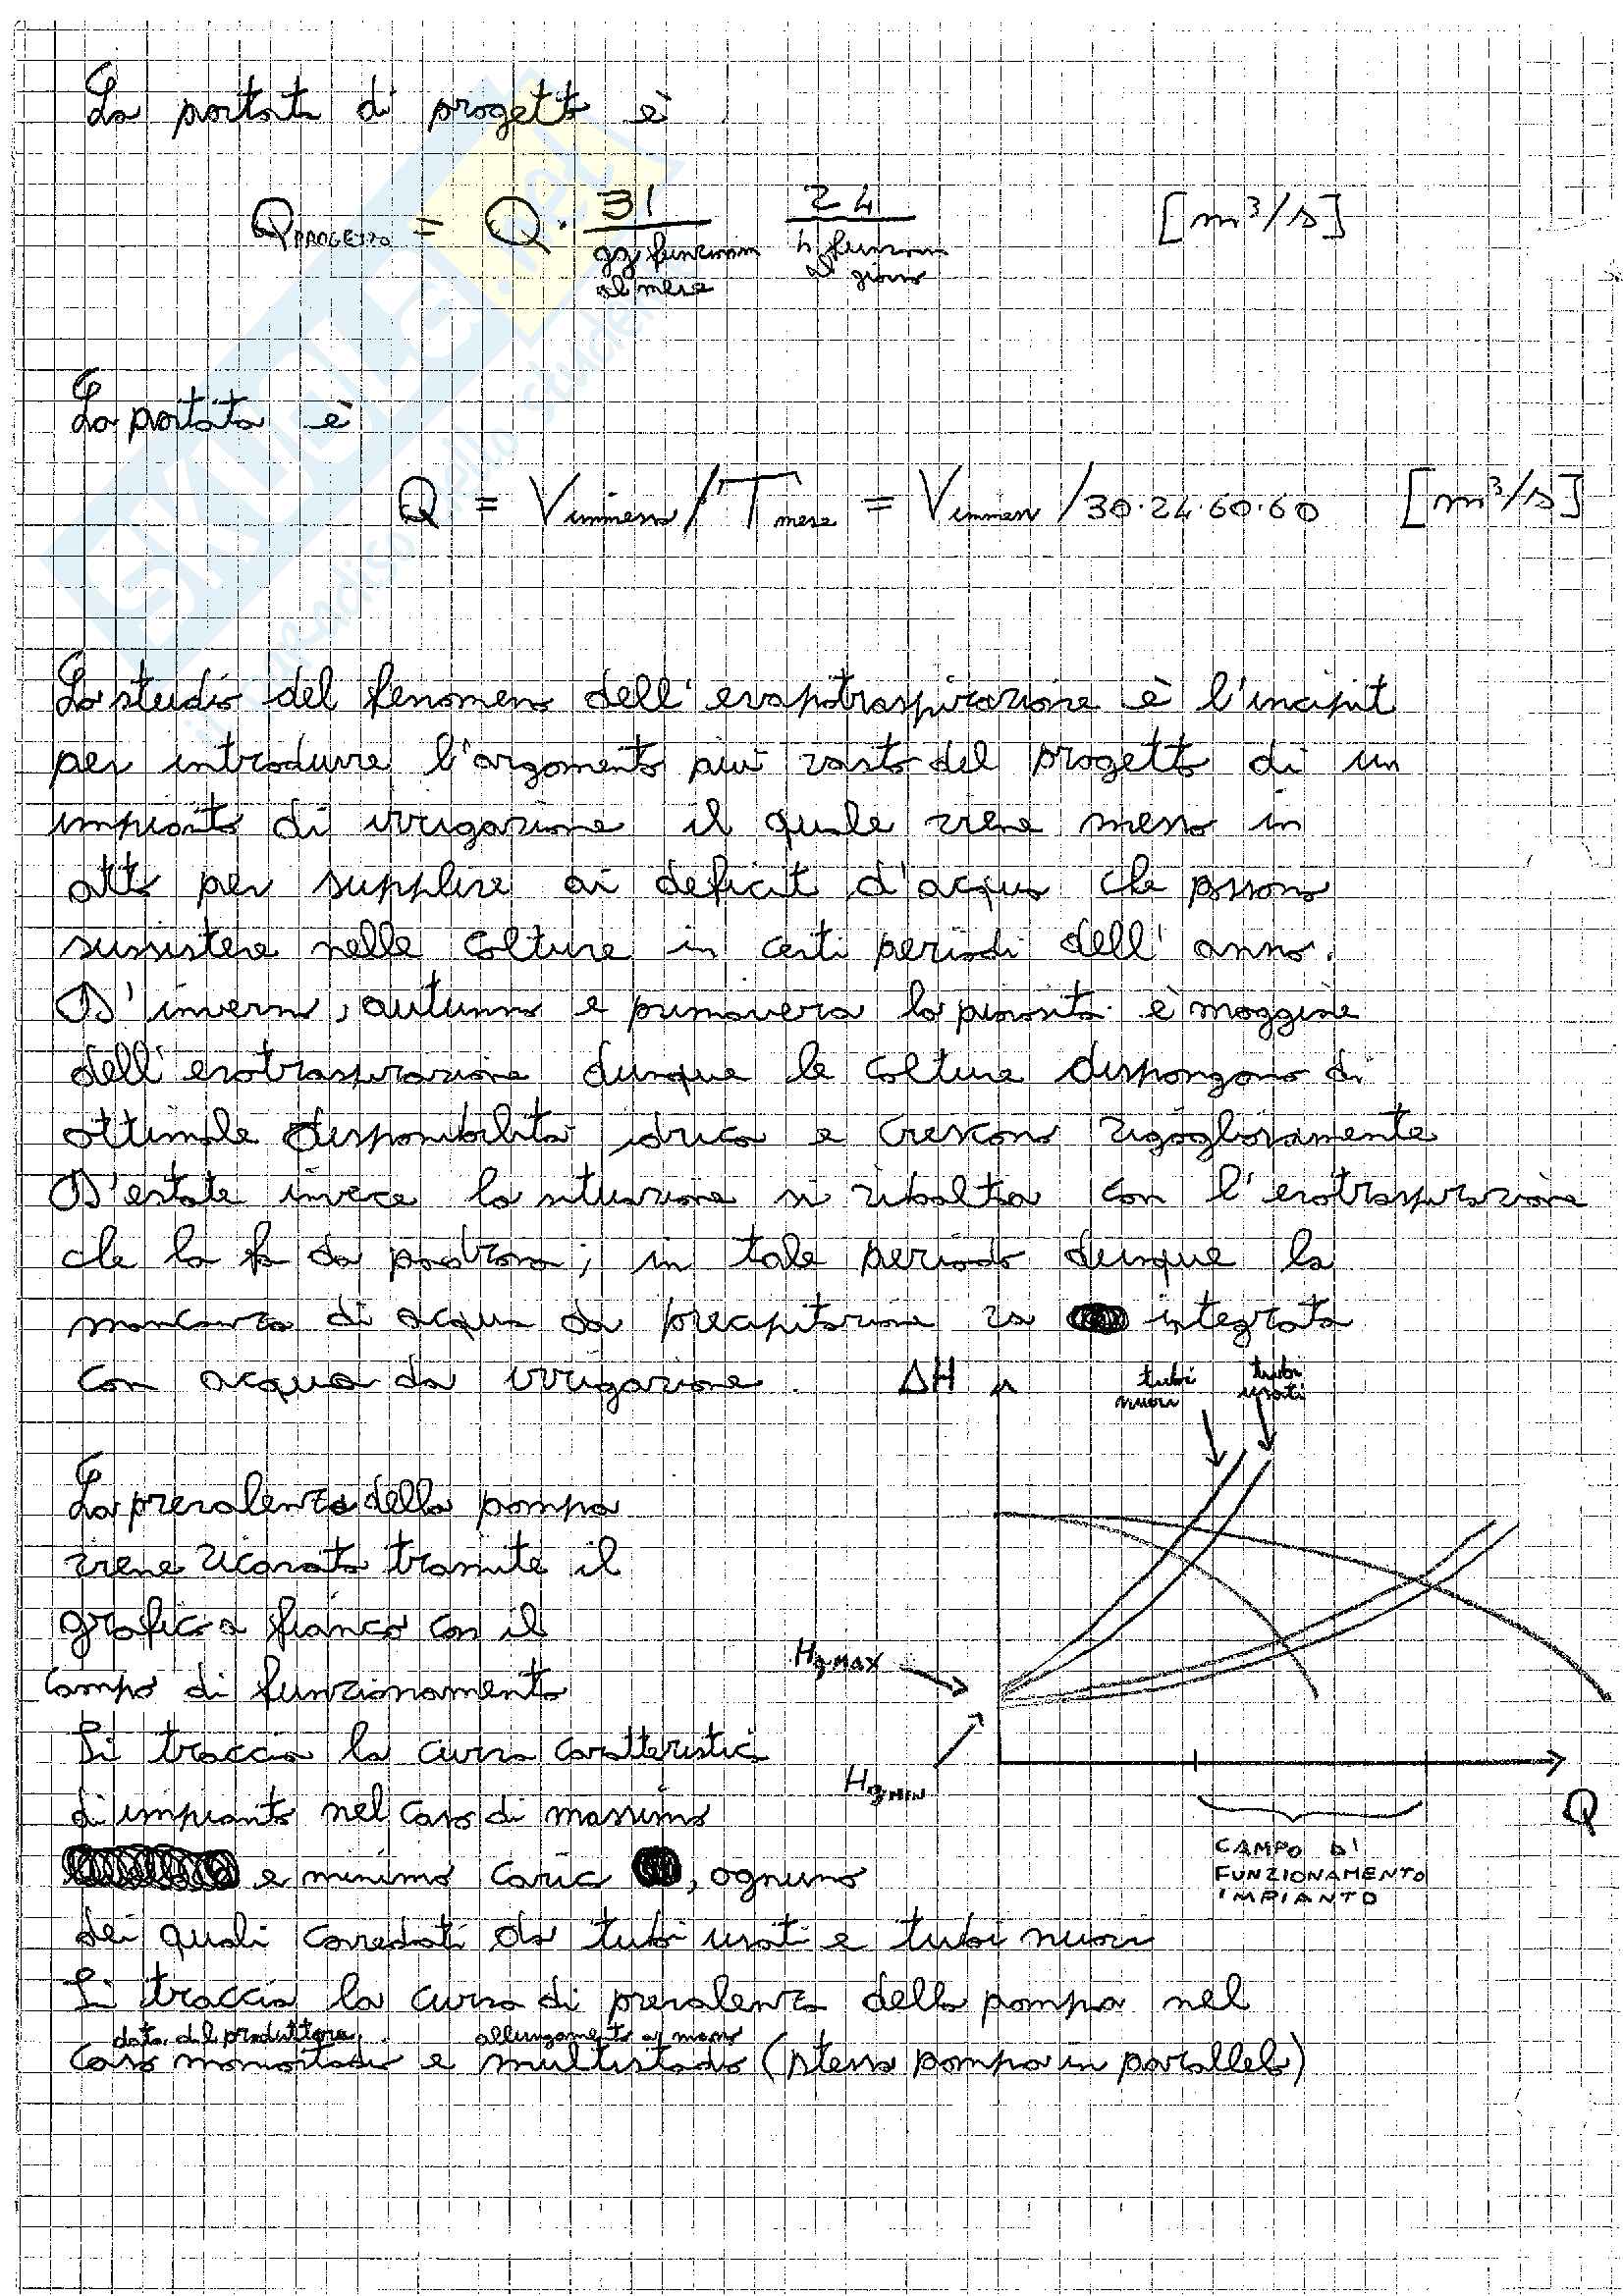 La portata di progetto è
Q PROGETTO = Q · 31 / gg funzionam al mese 24 / h funzionam al giorno [m³/s]
La portata è
Q = Vimmesso / Tmese = Vimmesso / 30·24·60·60 [m³/s]
Lo studio del fenomeno dell'evapotraspirazione è l'incipit
per introdurre l'argomento più vasto del progetto di un
impianto di irrigazione il quale viene messo in
atto per supplire ai deficit d'acqua che possono
sussistere nelle colture in certi periodi dell'anno.
D'inverno, autunno e primavera la piovosità è maggiore
dell'evotraspirazione dunque le colture dispongono di
ottimale disponibilità idrica e crescono rigogliosamente
D'estate invece la situazione si ribalta con l'evotraspirazione
che la fa da padrona; in tale periodo dunque la
mancanza di acqua da precipitazione va integrata
con acqua da irrigazione.
ΔH
tubi nuovi
tubi usati
La prevalenza della pompa
viene ricavata tramite il
grafico a fianco con il
campo di funzionamento
Hg MAX
Si traccia la curva caratteristica
Hg MIN
di impianto nel caso di massimo
Q
e minimo carico , ognuno
CAMPO DI
FUNZIONAMENTO
IMPIANTO
dei quali corredati da tubi usati e tubi nuovi
Si traccia la curva di prevalenza della pompa nel
data dal produttore allungamento a mano
caso monostadio e multistadio (stessa pompa in parallelo)